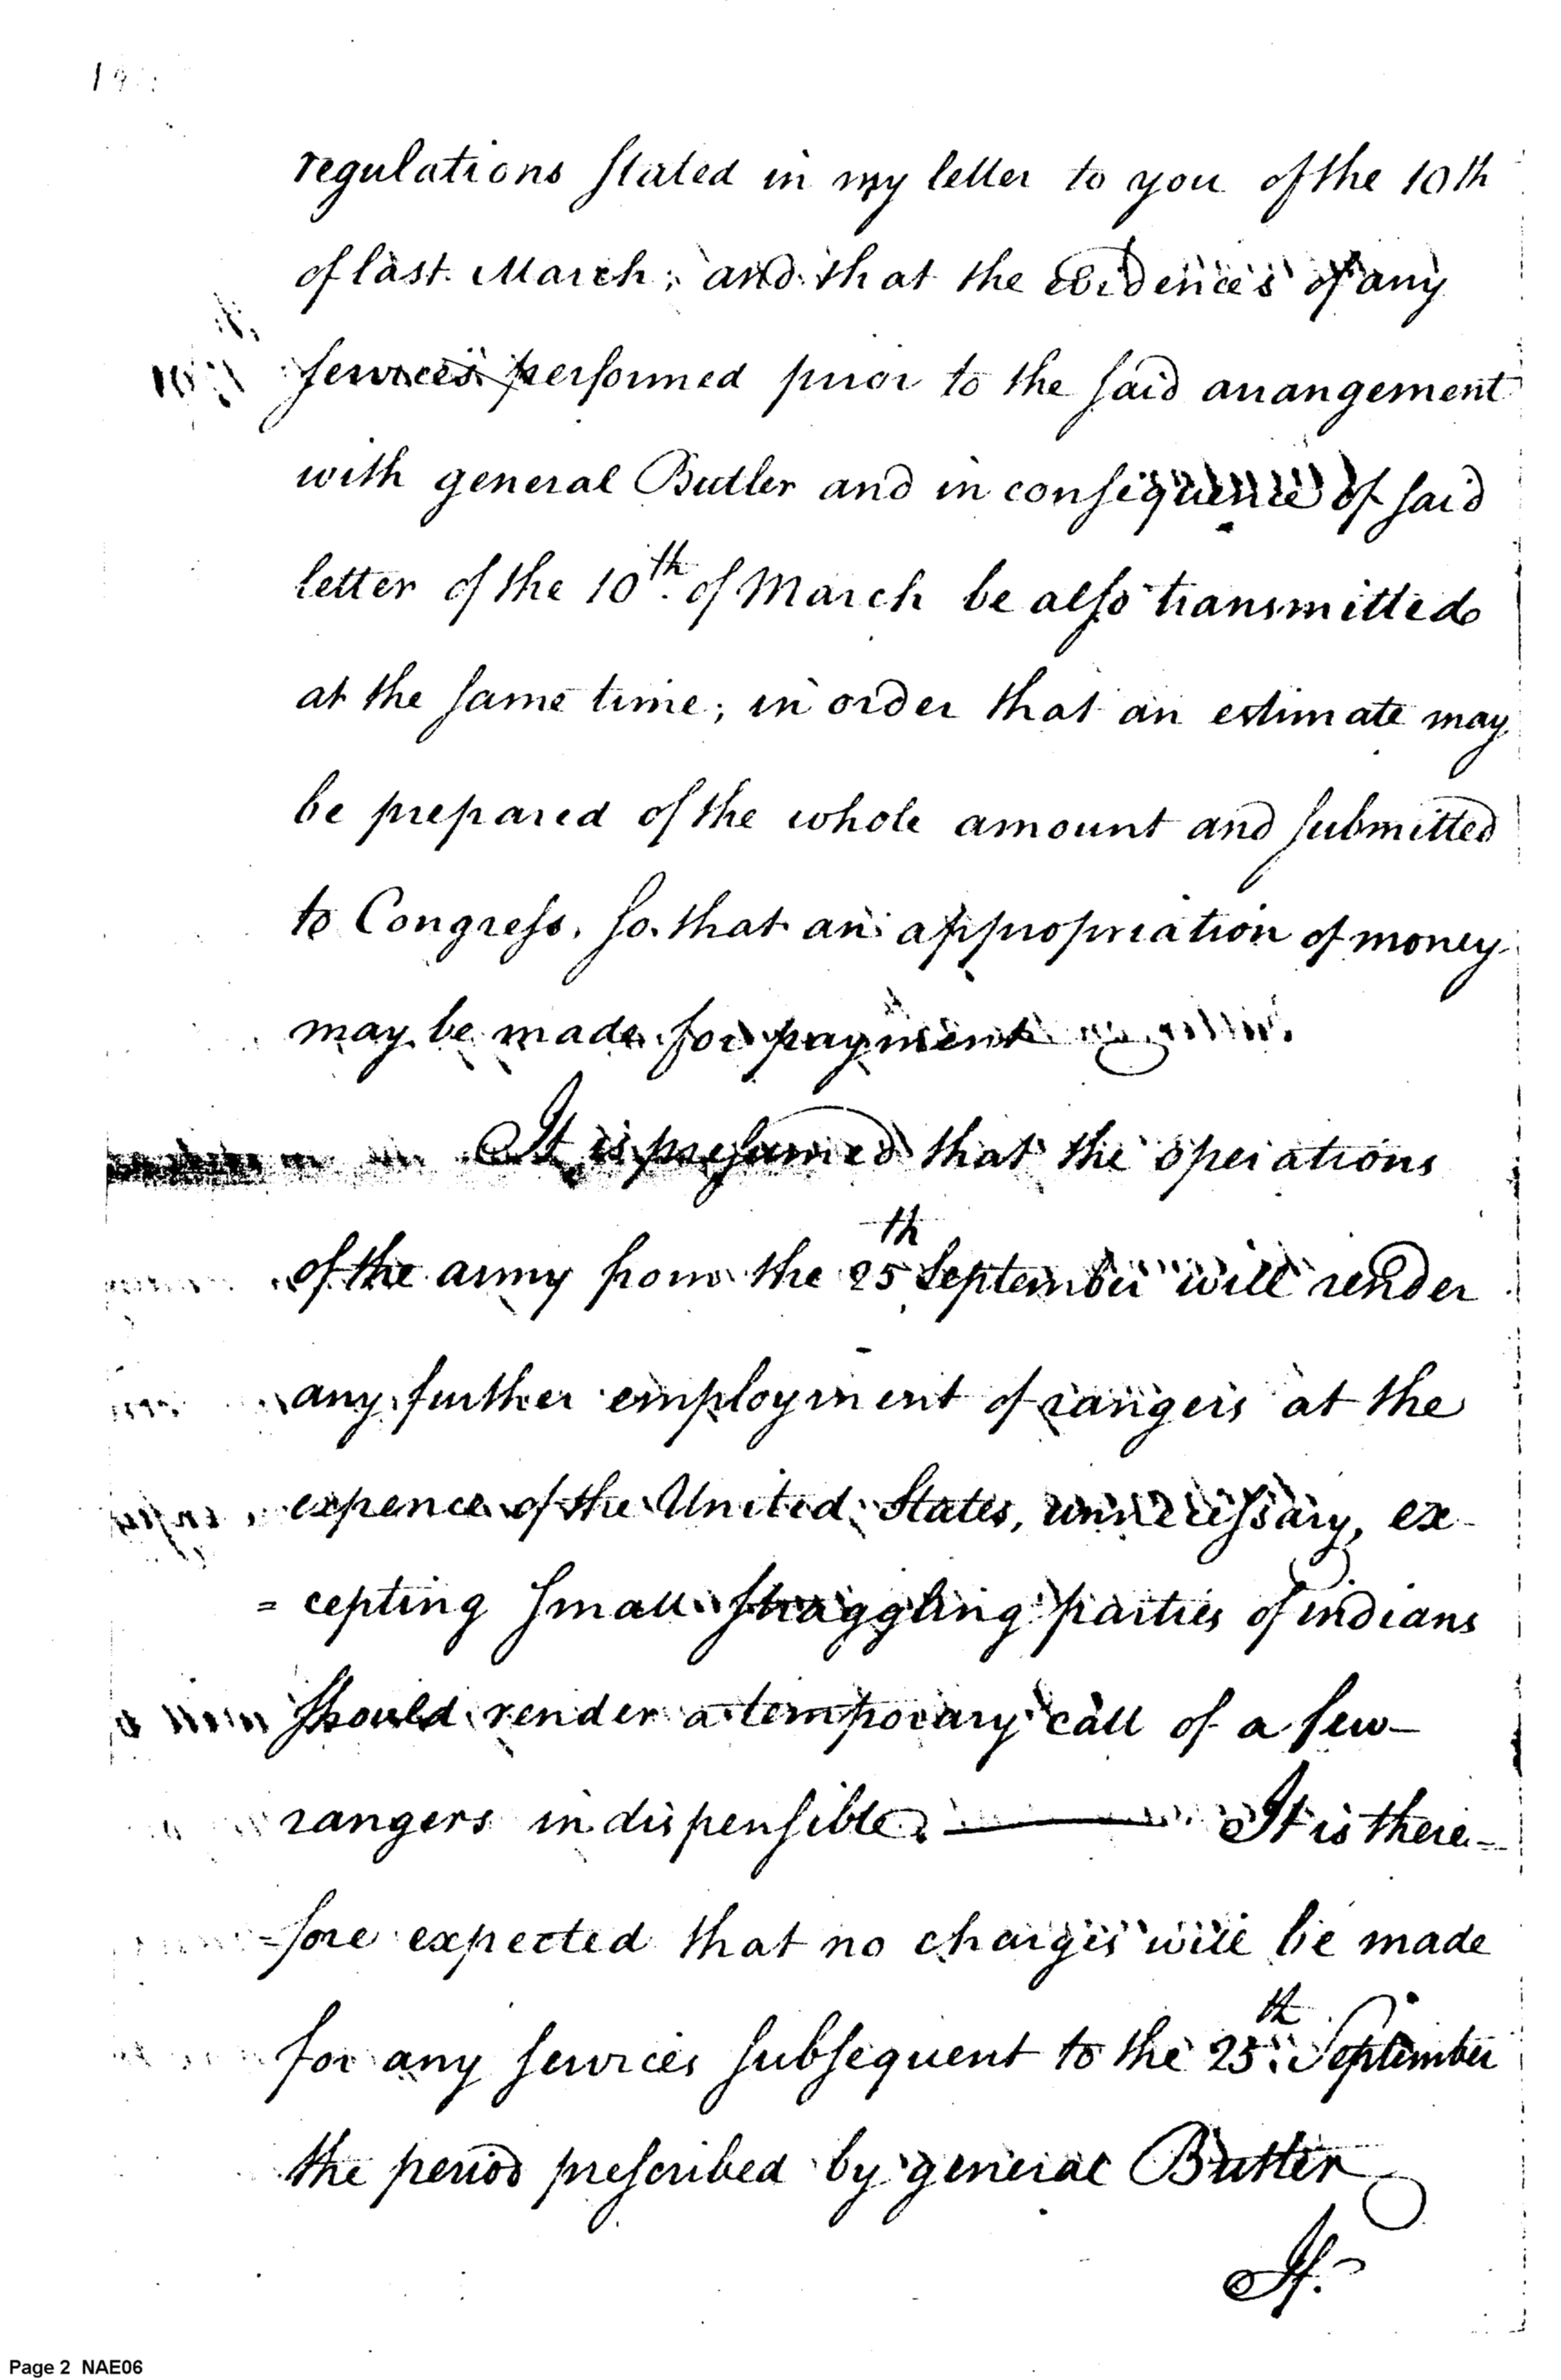 regulations stated in my letter to you of the 10th
of last March; and that the evidences of any
services performed prior to the said arrangement
with general Butler and in consequence of said
letter of the 10th. of March be also transmitted
at the same time; in order that an estimate may
be prepared of the whole amount and submitted
to Congress. so that an appropriation of money
may be made for payment
It is presumed that the operations
of the army from the 25th September will render
any further employment of rangers at the
expence of the United States, unnecessary, ex-
=cepting small straggling parties of indians
should render a temporary call of a few
rangers indispensible. — It is there-
=fore expected that no charges will be made
for any services subsequent to the 25th. September
the period prescribed by general Butler
If.
Page 2 NAE06